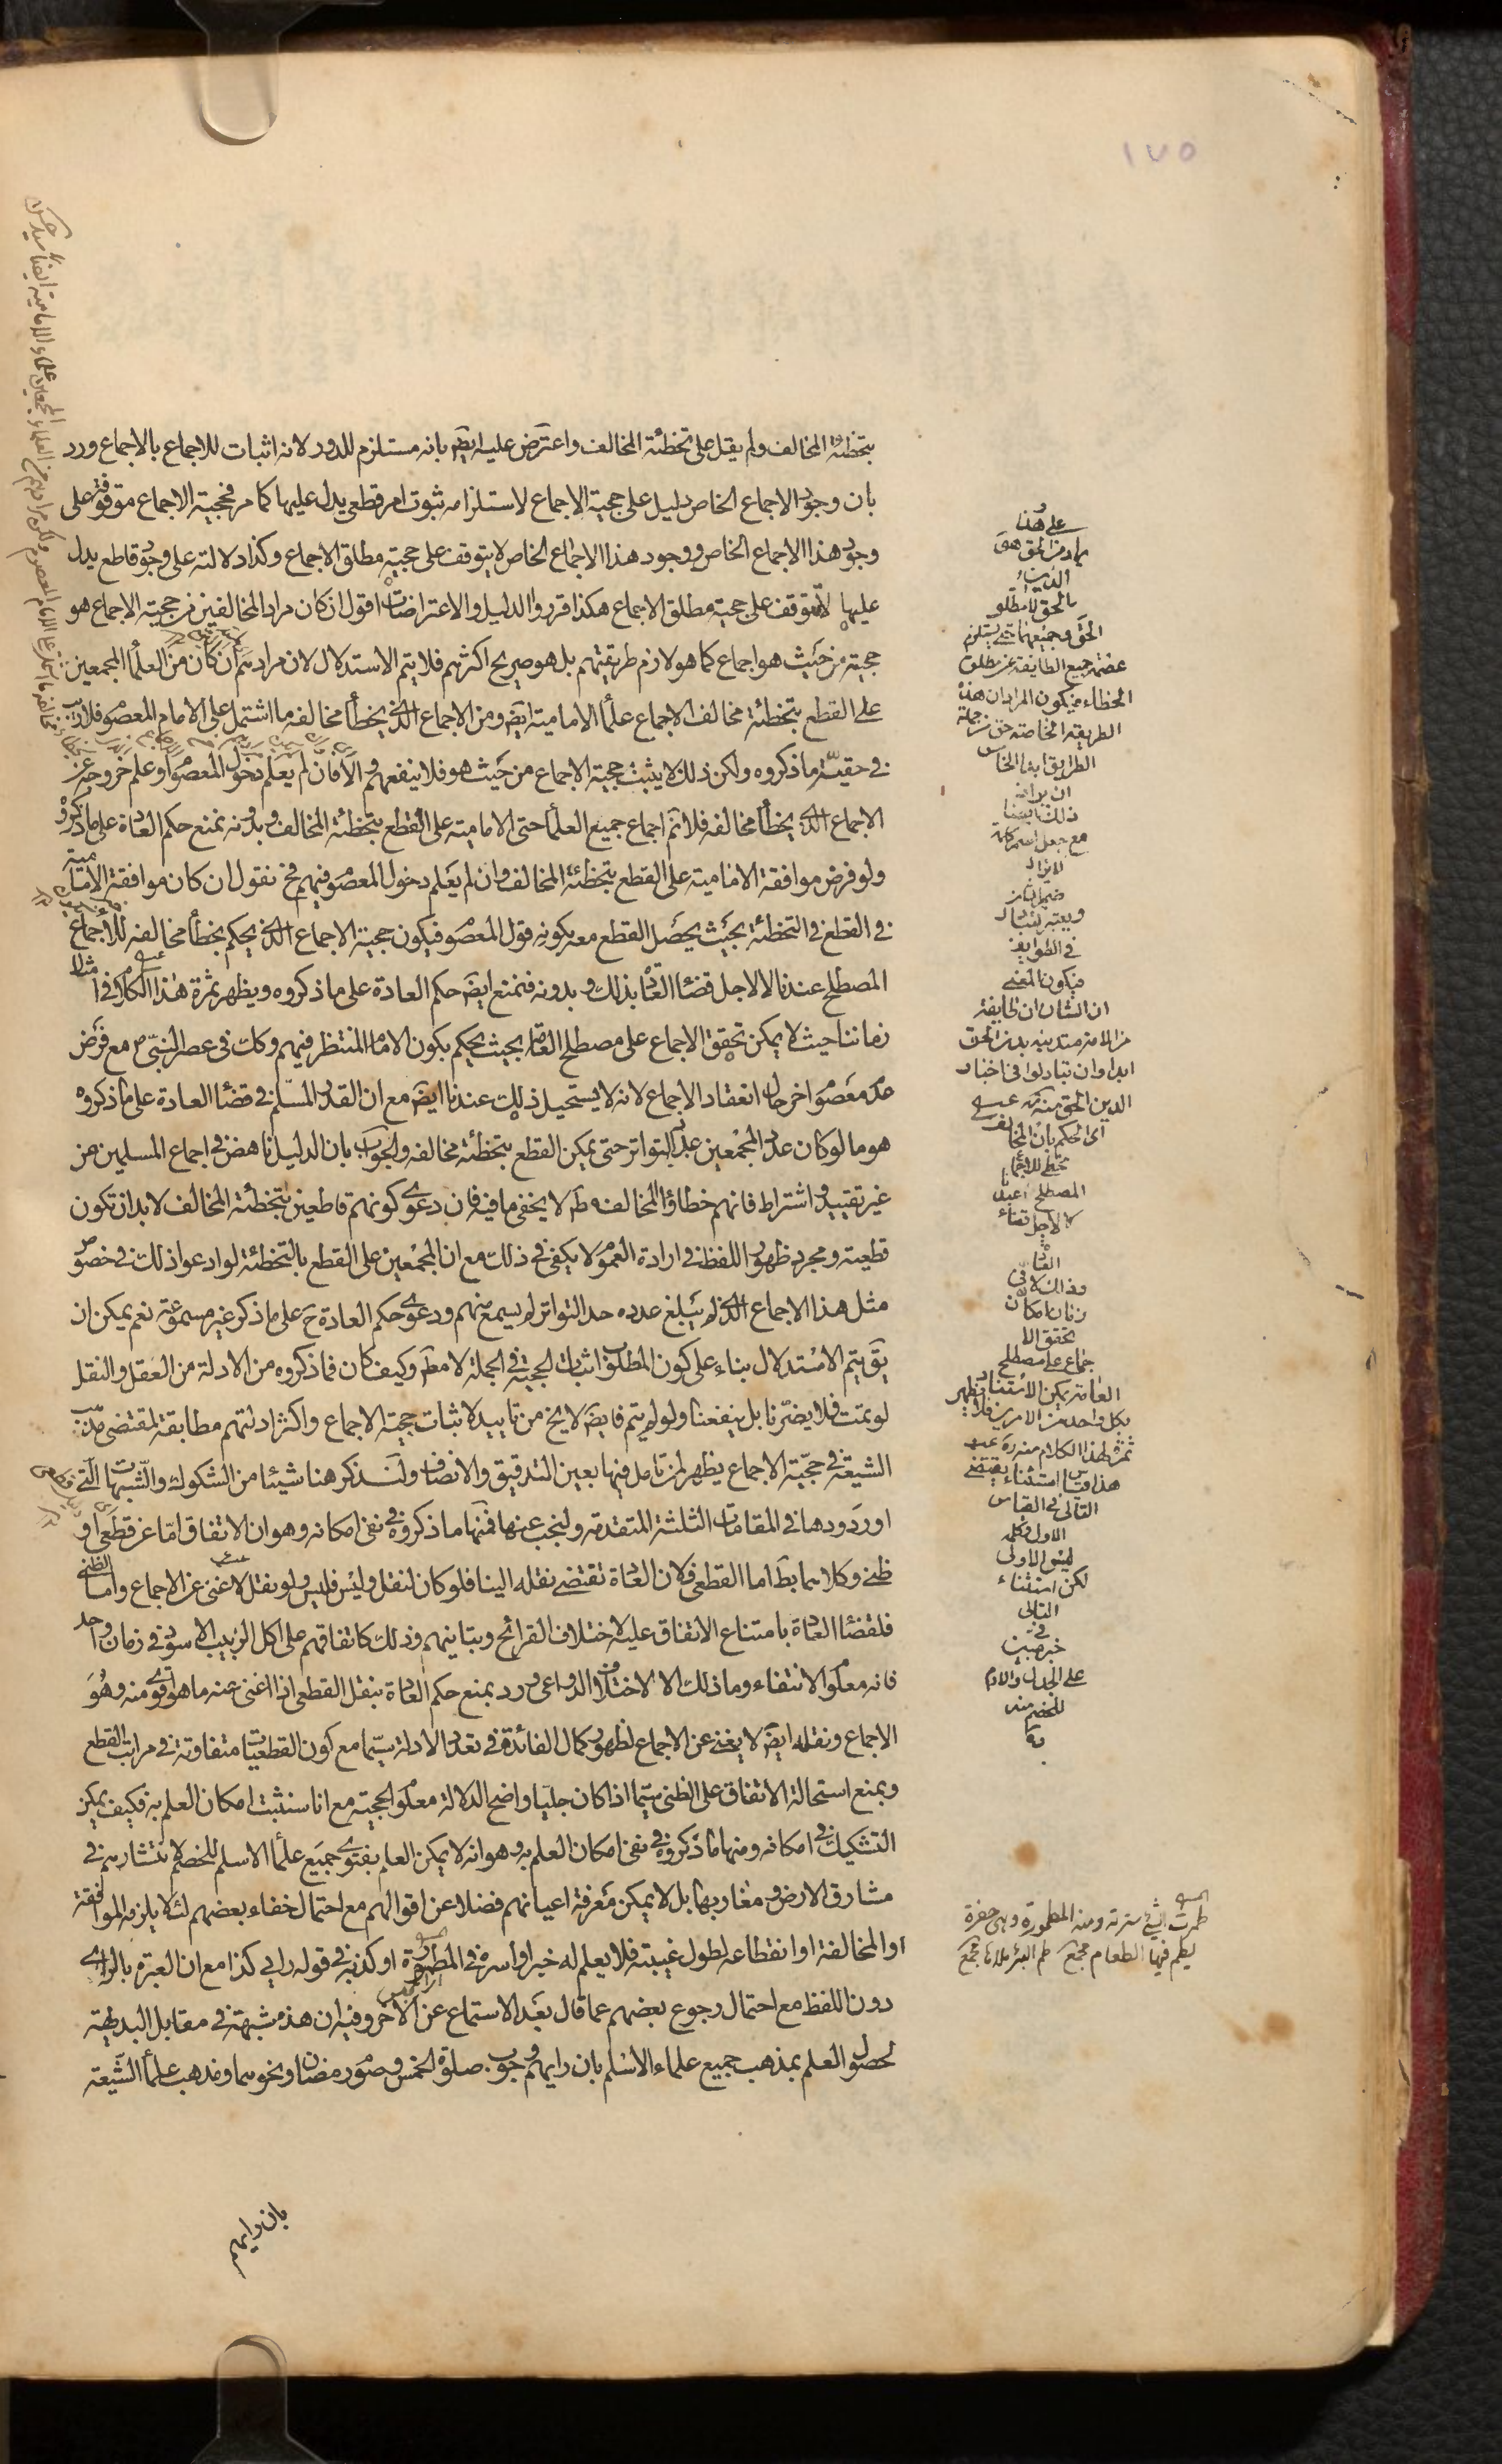 ١٧٥
بتخطئة المخالف ولم يقل على تخطئة المخالف واعترض عليه ايضا بانه مستلزم للدور لانه اثبات للاجماع بالاجماع ورد
بان وجود الاجماع الخاص دليل على حجية الاجماع لاستلزامه ثبوت امر قطعى يدل عليها كما مر فحجية الاجماع متوقفة على
وجود هذا الاجماع الخاص ووجود هذا الاجماع الخاص لا يتوقف على حجية مطلق الاجماع وكذا دلالته على وجود قاطع يدل
عليها لا تتوقف على حجية مطلق الاجماع هكذا قرروا الدليل والاعتراضات اقول ان كان مراد المخالفين من حجية الاجماع هو
حجية من حيث هو اجماع كما هو لازم طريقتهم بل هو صريح اكثرهم فلا يتم الاستدلال لان مرادهم ان كان من العلماء المجمعين
على القطع بتخطئة مخالف الاجماع علماء الامامية ايضا ومن الاجماع الذى يخطأ مخالفه ما اشتمل على الامام المعصوم فلا ريب
فى حقية ما ذكروه ولكن ذلك لا يثبت حجية الاجماع من حيث هو فلا ينفعهم والا فان لم يعلم دخول المعصوم او علم خروجه عن
الاجماع الذى يخطأ مخالفه فلا نم اجماع جميع العلماء حتى الامامية على القطع بتخطئة المخالف وبدونه نمنع حكم العادة على ما ذكروه
ولو فرض موافقة الامامية على القطع بتخطئة المخالف وان لم يعلم دخول المعصوم فيهم فح نقول ان كان موافقة الامامية
فى القطع فى التخطئة بحيث يحصل القطع معه بكونه قول المعصوم فيكون حجية الاجماع الذى يحكم بخطأ مخالفه للاجماع
المصطلح عندنا لا لاجل قضاء العادة بذلك وبدونه فنمنع ايضا حكم العادة على ما ذكروه ويظهر ثمرة هذا الكلام فى امثال
زماننا حيث لا يمكن تحقق الاجماع على مصطلح العامة بحيث يحكم بكون الامام المنتظر فيهم وكك فى عصر النبى ص مع فرض
عدم معصوم اخر حال انعقاد الاجماع لانه لا يستحيل ذلك عندنا ايضا مع ان القدر المسلم فى قضاء العادة على ما ذكروه
هو ما لو كان عدد المجمعين عدد التواتر حتى يمكن القطع بتخطئة مخالفه والجواب بان الدليل ناهض فى اجماع المسلمين من
غير تقييد واشتراط فانهم خطأوا المخالف مط لا يخفى ما فيه فان دعوى كونهم قاطعين بتخطئة المخالف لا بد ان تكون
قطعية ومجرد ظهور اللفظ فى ارادة العموم لا يكفى فى ذلك مع ان المجمعين على القطع بالتخطئة لو ادعوا ذلك فى خصوص
مثل هذا الاجماع الذى لم يبلغ عدده حد التواتر لم يسمع منهم ودعوى حكم العادة ح على ما ذكر غير مسموعة نعم يمكن ان
يق يتم الاستدلال بناء على كون المطلوب اثبات الحجية فى الجملة لا مط وكيف كان فما ذكروه من الادلة من العقل والنقل
لو تمت فلا يضرنا بل ينفعنا ولو لم يتم فايضا لا يخ من تاييد لاثبات حجية الاجماع واكثر ادلتهم مطابقة لمقتضى مذهب
الشيعة فى حجية الاجماع يظهر لمن تامل فيها بعين التدقيق والانصاف ولنذكر هنا شيئا من الشكوك والشبهات التى
اوردوها فى المقامات الثلثة المتقدمة ولنجب عنها فمنها ما ذكروه فى نفى امكانه وهو ان الاتفاق اما عن قطعى او
ظنى وكلاهما بط اما القطعى فلان العادة تقتضى نقله الينا فلو كان لنقل وليس فليس ولو نقل لاغنى عن الاجماع واما الظنى
فلقضاء العادة بامتناع الاتفاق عليه لاختلاف القرائح وتباينهم وذلك كاتفاقهم على اكل الزبيب الاسود فى زمان واحد
فانه معلوم الانتفاء وما ذلك الا لاختلاف الدواعى ورد بمنع حكم العادة بنقل القطعى اذا اغنى عنه ما هو اقوى منه وهو
الاجماع ونقله ايضا لا يغنى عن الاجماع لظهور كمال الفائدة فى تعدد الادلة سيما مع كون القطعيات متفاوتة فى مراتب القطع
وبمنع استحالة الاتفاق على الظنى سيما اذا كان جليا واضح الدلالة معلوم الحجية مع انا سنثبت امكان العلم به فكيف يمكن
التشكيك فى امكانه ومنها ما ذكروه فى نفى امكان العلم به وهو انه لا يمكن العلم بفتوى جميع علماء الاسلام لانتشارهم فى
مشارق الارض ومغاربها بل لا يمكن معرفة اعيانهم فضلا عن اقوالهم مع احتمال خفاء بعضهم لئلا يلزمه الموافقة
او المخالفة او انقطاعه لطول غيبته فلا يعلم له خبر او اسره فى المطمورة او كذبه فى قوله رايى كذا مع ان العبرة بالراى
دون اللفظ مع احتمال رجوع بعضهم عما قال بعد الاستماع عن الاخر وفيه ان هذه شبهة فى مقابل البديهة
لحصول العلم بمذهب جميع علماء الاسلام بان رايهم وجوب صلوة الخمس وصوم رمضان ونحوهما ومذهب علماء الشيعة
بان رايهم
على هذا
الحق وجميعها حتى يستلزم
عصمة جميع الطايفة عن مطلق
الخطاء فيكون المراد ان هذه
الطريقة الخاصة حق من جملة
فى الطوايف
فيكون المعنى
ان الشان ان طايفة
من الامة متدينة بدين الحق
ابدا وان تبادلوا فى اختيار
الدين الحق منه ره
اى الحكم بان المخالف
مخطئ للاجماع
المصطلح عندنا
لا لاجل قضاء
العادة
وذلك لان فى
زماننا كان
تحقق الا
جماع على مصطلح
العامة يمكن الاستناد
بكل واحد من الامرين فلا يظهر
ثمرة لهذا الكلام منه ره
هذا قياس استثناء يقتضى
التالى فى القياس
الاول وكلمة
ليس الاولى
لكن استثناء
التالى
على الجدل والالزام
للخصم منه
ره
طمرت الشئ سترته ومنه المطمورة وهى حفرة
يطمر فيها الطعام مجمع طم البئر ملاءها مجمع